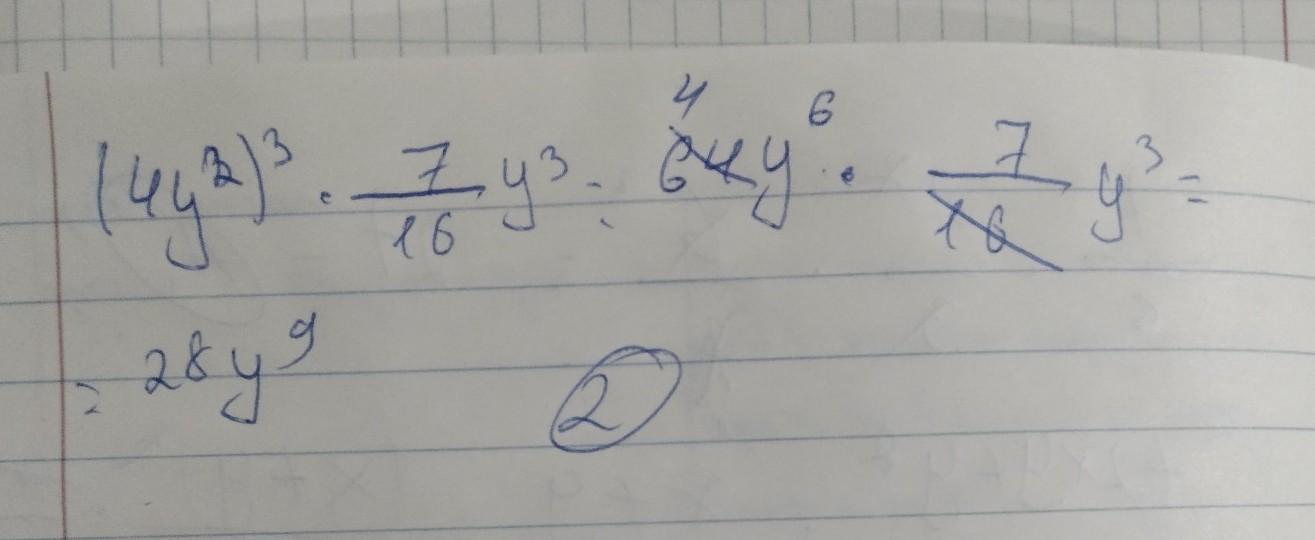 (4y²)³ · 7/16 y³ = 64 4 y⁶ · 7/16 y³ =
= 28y⁹
2